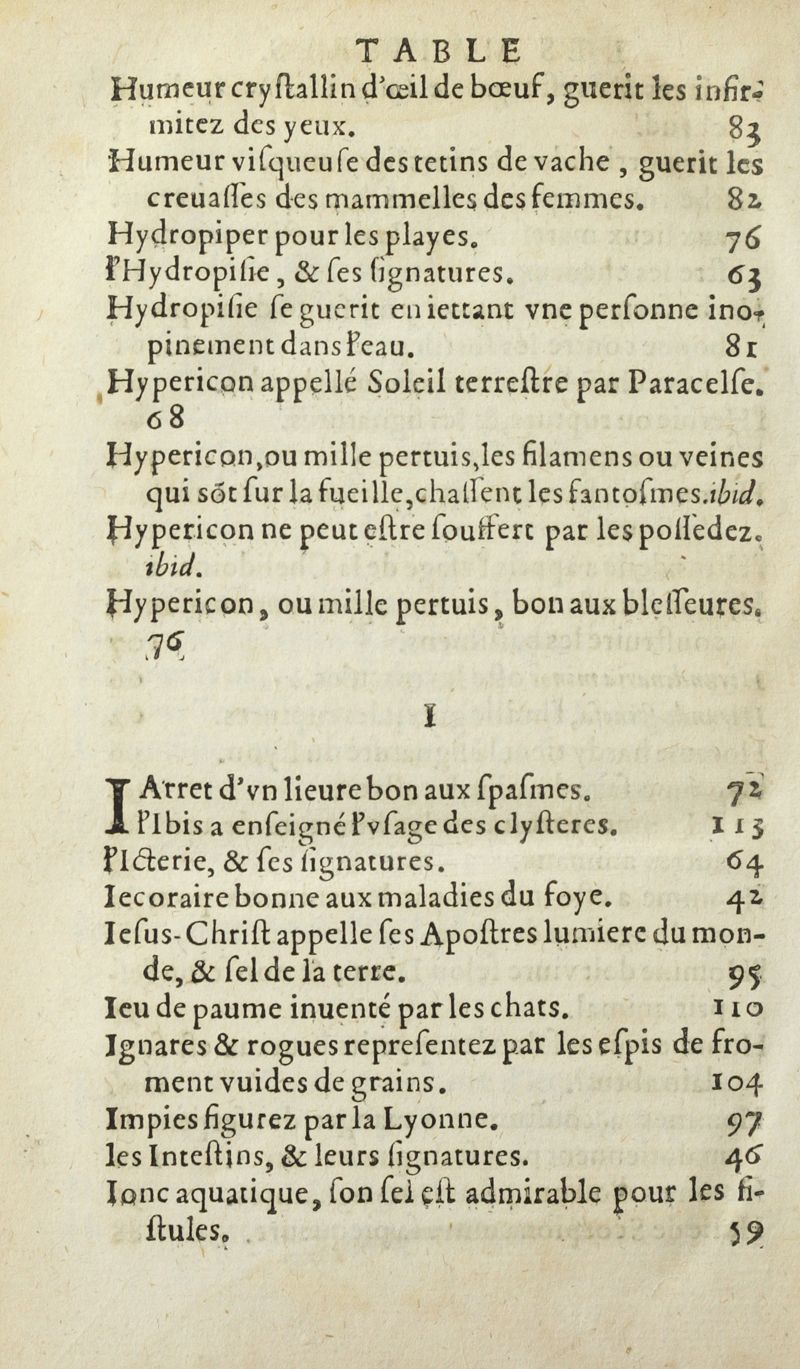 TABLE
Humeur cryſtallin d'œil de bœuf, guerit les infir-
mitez des yeux. 83
Humeur viſqueuſe des tetins de vache , guerit les
creuaſſes des mammelles des femmes. 82
Hydropiper pour les playes. 76
l'Hydropiſie , & ſes ſignatures. 63
Hydropiſie ſe guerit en iettant vne perſonne ino-
pinement dans l'eau. 81
Hypericon appellé Soleil terreſtre par Paracelſe.
68
Hypericon, ou mille pertuis, les filamens ou veines
qui sõt ſur la fueille, chaſſent les fantoſmes. ibid.
Hypericon ne peut eſtre ſouffert par les poſſedez.
ibid.
Hypericon, ou mille pertuis, bon aux bleſſeures.
76
I
IArret d'vn lieure bon aux ſpaſmes. 72
l'Ibis a enſeigné l'vſage des clyſteres. 113
l'Icterie, & ſes ſignatures. 64
Iecoraire bonne aux maladies du foye. 42
Ieſus-Chriſt appelle ſes Apoſtres lumiere du mon-
de, & ſel de la terre. 95
Ieu de paume inuenté par les chats. 110
Ignares & rogues repreſentez par les eſpis de fro-
ment vuides de grains. 104
Impies figurez par la Lyonne. 97
les Inteſtins, & leurs ſignatures. 46
Ionc aquatique, ſon ſel eſt admirable pour les fi-
ſtules. 59